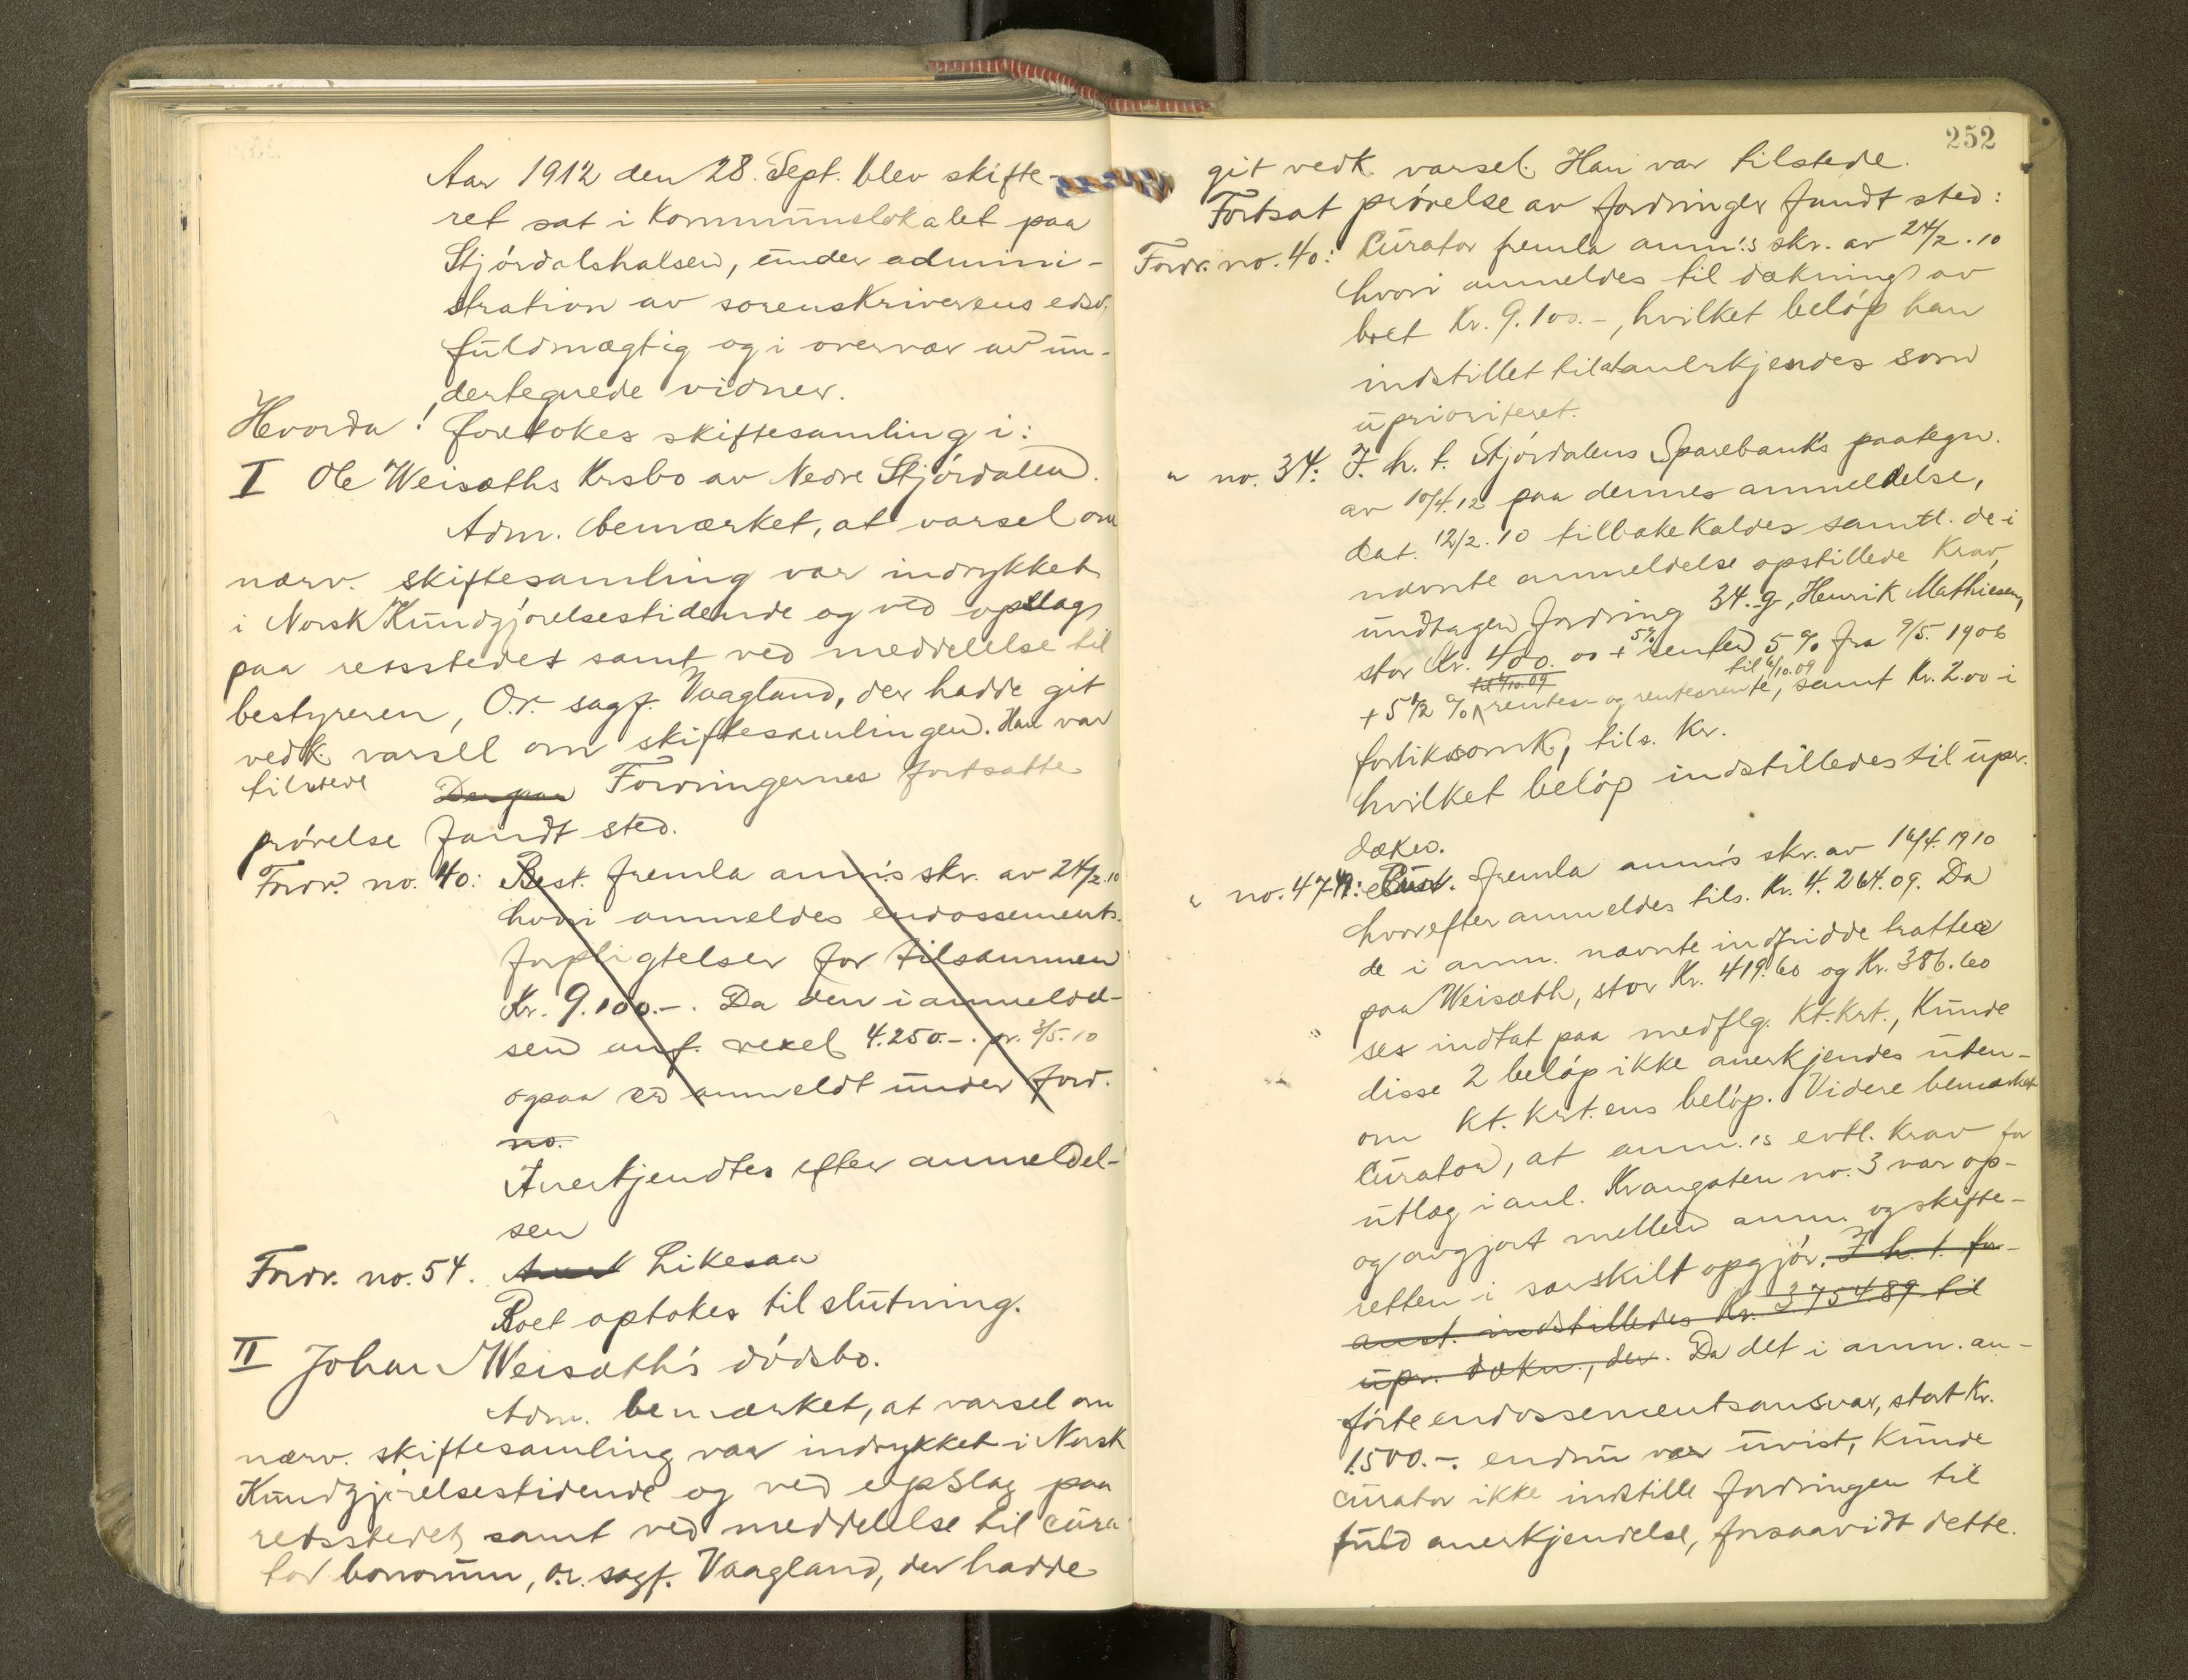 Aar 1912 den 28. Sept. blev skifte-
ret sat i Kommunelokalet paa
Stjórdalshalsen, under admini-
stration av sorenskriverens edsv.
fuldmægtig og i overvær av un-
dertegnede vidner.
Hvorda! foretokes skiftesamling i:
I Ole Weisæths Krsbo av Nedre Stjórdalen.
Adm. bemærket, at varsel om
nærv. skiftesamling var indrykket
i Norsk Kundgjørelsestidende og ved opslag
paa retsstedet samt ved meddelelse til
bestyreren, O.r. sagf. Vaagland, der hadde git
vedk. varsel om skiftesamlingen. Han var
tilstede Derpaa Fordringernes fortsatte
próvelse fandt sted.
Fordr. no. 40: Best. fremla anm.s skr. av 24/2.10
hvori anmeldes endossements.
forpligtelser for tilsammen
Kr. 9.100.-. Da den i anmeldel-
sen anf. vexel 4.250.-. pr. 3/5.10
ogsaa er anmeldt under ford.
no.
Anerkjendtes efter anmeldel-
sen
Fordr. no. 54. Likesaa
Boet optokes til slutning.
II Johan Weisæth's dódsbo.
Adm. bemærket, at varsel om
nærv. skiftesamling var indrykket i Norsk
Kundgjórelsestidende og ved opslag paa
retsstedet, samt ved meddelelse til cura-
tor bonorum, o.r. sagf. Vaagland, der hadde
252
git vedk. varsel. Han var tilstede.
Fortsat próvelse av fordringer fandt sted:
Fordr. no. 40: Curator fremla anm.'s skr. av 24/2.10
hvori anmeldes til dækning av
boet Kr. 9.100.-, hvilket beløp han
indstillet til at anerkjendes som
uprioriteret.
" no. 34: I. h. t. Stjórdalens Sparebank's paategn.
av 10/4.12 paa dennes anmeldelse,
dat. 12/2.10 tilbakekaldes samtl. de i
nævnte anmeldelse opstillede Krav,
undtagen fordring 34.g, Henrik Mathiesen,
stor Kr. 400.00 + 5% renter 5% fra 9/5. 1906
til 6/10.09 til 6/10.09
+ 5 1/2 % rentes- og rentesrente, samt Kr. 2.00 i
forliksomk, tils. Kr.
hvilket beløp indstilledes til upr.
dækn.
" no. 47-49: Curt. fremla anm's skr. av 16/4.1910
hvorefter anmeldes tils. Kr. 4.264.09. Da
de i anm. nævnte indfridde tratter
paa Weisæth, stor Kr. 419.60 og Kr. 386.60
" ses indtat paa medflg. Kt.Krt., Kunde
disse 2 beløp ikke anerkjendes uten-
om Kt. Krt.ens beløp. Videre bemærket
Curator, at anm.'s evtl. Krav for
utlæg i anl. Krangaten no. 3 var op-
og avgjort mellem anm. og skifte-
retten i særskilt opgjór. I h. t. for-
anst. indstilledes Kr. 3.754.89 til
upr. dækn., der. Da det i anm. an-
fórte endossementsansvar, stort Kr.
1.500.-. endnu var uvist, Kunde
curator ikke indstille fordringen til
fuld anerkjendelse, forsaavidt dette.